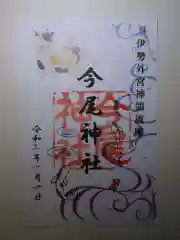 伊勢外宮神明鎮座
今尾神社
今尾神社
令和三年一月一日